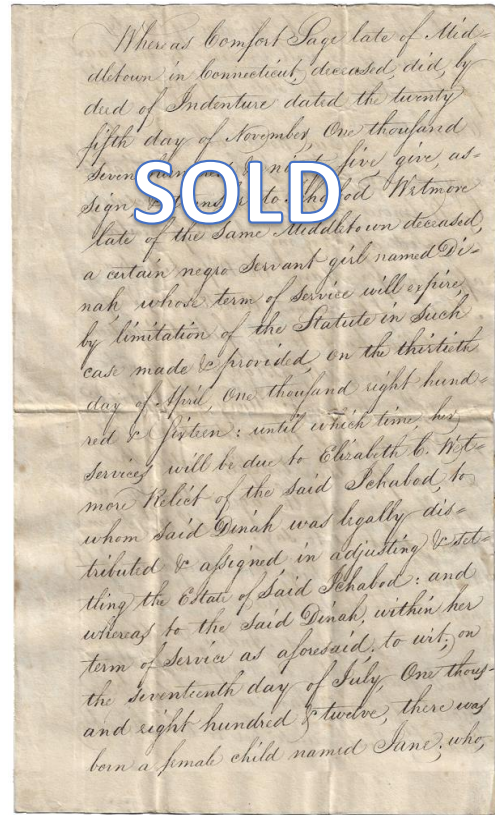 Whereas Comfort Sage late of Mid=
dletown in Connecticut, deceased, did, by
deed of Indenture dated the twenty
fifth day of November, One thousand
seven five give, as=
SOLD
sign to Ichabod Wetmore
late of the same Middletown deceased,
a certain negro servant girl named Di=
nah whose term of service will expire,
by limitation of the Statute in such
case made & provided, on the thirtieth
day of April, One thousand eight hund=
red & sixteen: until which time, her
services will be due to Elizabeth C. Wet=
more Relict of the said Ichabod, to
whom said Dinah was legally dis=
tributed & assigned in adjusting & set=
tling the Estate of said Ichabod: and
whereas to the said Dinah, within her
term of service as aforesaid, to wit, on
the seventeenth day of July, One thous=
and eight hundred & twelve, there was
born a female child named Jane, who,